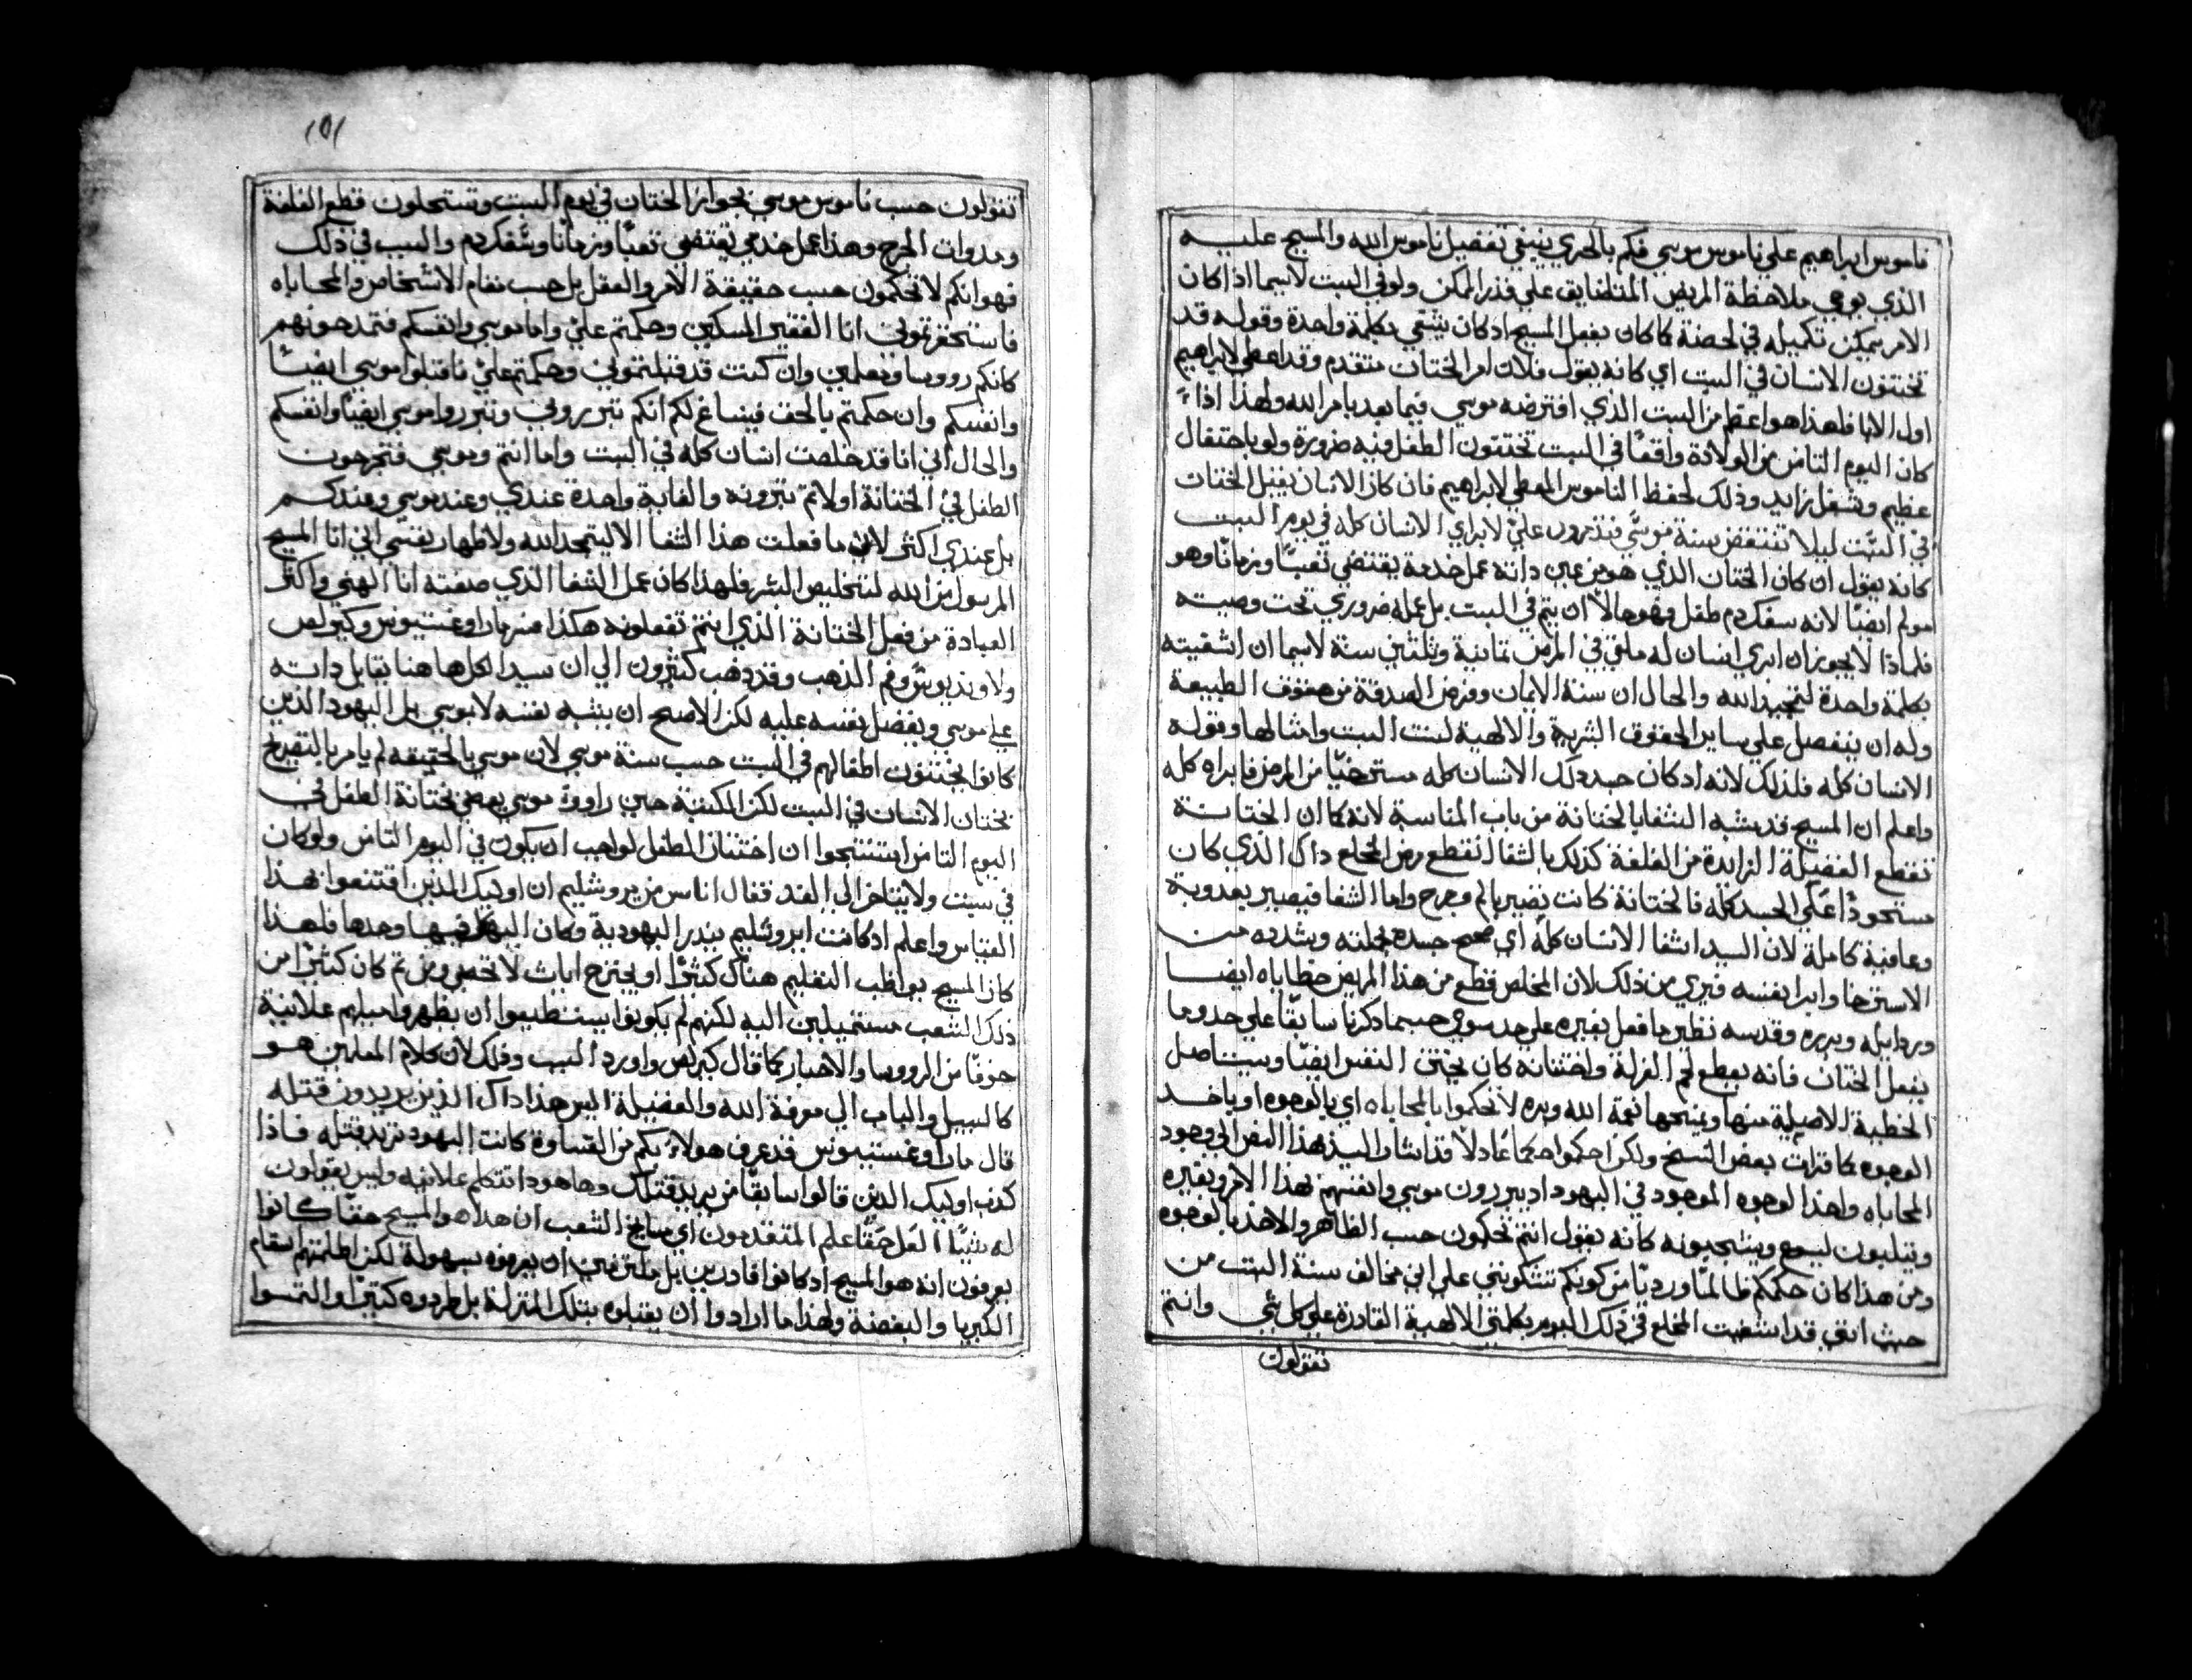 ناموس ابراهيم علي ناموس موسي فكم بالحري ينبغي تفضيل ناموس الله والمسيح عليه
الذي يوصي ملاحظة المريض المتضايق علي قدر الممكن ولو في السبت لاسيما اذا كان
الامر يمكن تكميله في لحضة كما كان يفعل المسيح اد كان يشفي بكلمة واحدة وقوله قد
تختنون الانسان في السبت اي كانه يقول فلان امر الختان متقدم وقد اعطي لابراهيم
اول الابا فلهذا هو اعظم من السبت الذي افترضه موسي فيما بعد بامر الله ولهذا اذا
كان اليوم الثامن من الولادة واقعًا في السبت تختنون الطفل فيه ضرورة ولو باحتفال
عظيم وشغل زايد وذلك لحفظ الناموس المعطي لابراهيم فان كان الانسان يقبل الختان
في السبت ليلا تنتقض سنة موسي فتدمرون علي لابراي الانسان كله في يوم السبت
كانه يقول ان كان الختان الذي هو من عين داته عمل خدمة يقتضي تعبًا وزمانًا وهو
مولم ايضًا لانه سفك دم طفل وهو حالا ان يتم في السبت بل عمله ضروري تحت وصيته
فلماذا لا يجوز ان ابري انسان له ملقي في المرض ثمانية وثلثين سنة لاسيما ان اشفيته
بكلمة واحدة لتمجيد الله والحال ان سنة الايمان وفرض الصدقة من حقوق الطبيعة
وله ان يتفضل علي ساير الحقوق البشرية والالهية لسنت السبت وامثالها وقوله
الانسان كله فلذلك لانه اد كان جسد ذلك الانسان كله مسترخيًا من المرض فابراه كله
واعلم ان المسيح قد يشبه الشفا بالختانة من باب المناسبة لانه كما ان الختانة
تقطع الفضيلة الزايدة من القلفة كذلك بالشفا انقطع مرض المخلع داك الذي كان
مستحوذًا علي الجسد كله فالختانة كانت تصير بالم وجرح واما الشفا فيصير بعدوبة
وعافية كاملة لان السيد اشفا الانسان كله اي صحح جسده بجملته وشدده من
الاسترخا وابرا نفسه فيري من ذلك لان المخلص قطع من هذا المريض خطاياه ايضا
وردايله وبرره وقدسه نظير ما فعل بغيره علي حد سوي حسبما دكرنا سابقًا علي حد وما
يفعل الختان فانه يقطع لحم الغرلة واختتانه كان يختن النفس ايضًا ويستاصل
الخطية الاصلية منها ويمنحها نعمة الله وبره لا تحكموا بالمحاباه اي بالوجوه او باخد
الوجوه كما قرات بعض النسخ ولكن احكموا حكمًا عادلًا قد اشار السيد بهذا النص الي وجود
المحاباه واخد الوجوه الموجود في اليهود اد يبررون موسي وانفسهم بهذا الامر وبغيره
ويثلبون ليسوع ويشجبونه كانه يقول انتم تحكمون حسب الظاهر والاخد بالوجوه
ومن هذا كان حكمكم ظالمًا ورديًا من كونكم تشكونني علي اني مخالف سنة السبت من
حيث انني قد اشفيت المخلع في ذلك اليوم بكلمتي الالهية القادرة علي كل شي وانتم
تقولون
١٥١
تقولون حسب ناموس موسي بجواز الختان في يوم السبت وتستحلون قطع القلفة
ومدوات الجرح وهذا عمل خدمي يقتضي تعبًا وزمانًا وسفك دم والسبب في ذلك
فهو انكم لا تحكمون حسب حقيقة الامر والعقل بل حسب مقام الاشخاص والمحاباه
فاستحقرتموني انا الفقير المسكين وحكمتم علي واما موسي وانفسكم فتمدحونهم
كانكم رووسا ومعلمين وان كنت قد قبلتموني وحكمتم علي فاقتلوا موسي ايضًا
وانفسكم وان حكمتم بالحق فينساغ لكم انكم تبرروني وتبرروا موسي ايضًا وانفسكم
والحال اني انا قد خلصت انسان كله في السبت واما انتم وموسي فتجرحون
الطفل في الختانة اولا ثم تبرونه والغاية واحدة عندي وعند موسي وعندكم
بل عندي اكثر لاني ما فعلت هذا الشفا الا ليتمجد الله ولاظهار نفسي اني انا المسيح
المرسول من الله لتخليص البشر فلهذا كان عمل الشفا الذي صنعته انا الهني واكثر
العبادة من فعل الختانة الذي انتم تفعلونه هكذا فسرهار اوغستينوس وكيرلص
ولاونديوس وفم الذهب وقد ذهب كثيرون الي ان سيد الكل هاهنا يقابل داته
علي موسي ويفضل نفسه عليه لكن الاصح ان يشبه نفسه لا بموسي بل اليهود الذين
كانوا يختنون اطفالهم في السبت حسب سنة موسي لان موسي بالحقيقه لم يامر بالتصريح
بختان الانسان في السبت لكن الكهنة حين راووا موسي يوصي بختانة الطفل في
اليوم الثامن استنتجوا ان اختتان الطفل لواجب ان يكون في اليوم الثامن ولو كان
في سبت ولا يتاخر الي الغد فقال اناس من يروشليم ان اوليك الذين اقتنعوا بهذا
القياس واعلم اد كانت ايروشليم بندر اليهودية وكان اليهود فيها وحدها فلهذا
كان المسيح يواظب التعليم هناك كثيرًا او يجترح ايات لا تحصي ومن ثم كان كثيرًا من
ذلك الشعب مستميلين اليه لكنهم لم يكونوا يستطيعوا ان يظهروا ميلهم علانية
خوفًا من الرووسا والاحبار كما قال كيرلص واورد السبب وذلك لان كلام المعلمين هو
كالسبيل والباب الي معرفة الله والفضيلة اليس هذا داك الذين يريدون قتله
قال مار اوغستينوس قد عرف هولاء بكم من القساوة كانت اليهود تريد قتله فاذا
كذب اوليك الذين قالوا سابقًا من يريد قتلك وها هودا تتكلم علانيه وليس يقولون
له شيًا العل حقًا علم المتقدمون اي مشايخ الشعب ان هذا هو المسيح حقًا كانوا
يعرفون انه هو المسيح اد كانوا قادرين بل ملتزمين ان يعرفوه بسهولة لكن اظلمتهم اسقام
الكبريا والبغضة ولهذا ما ارادوا ان يقبلوه بتلك المنزلة بل طردوه كثيرًا والتمسوا